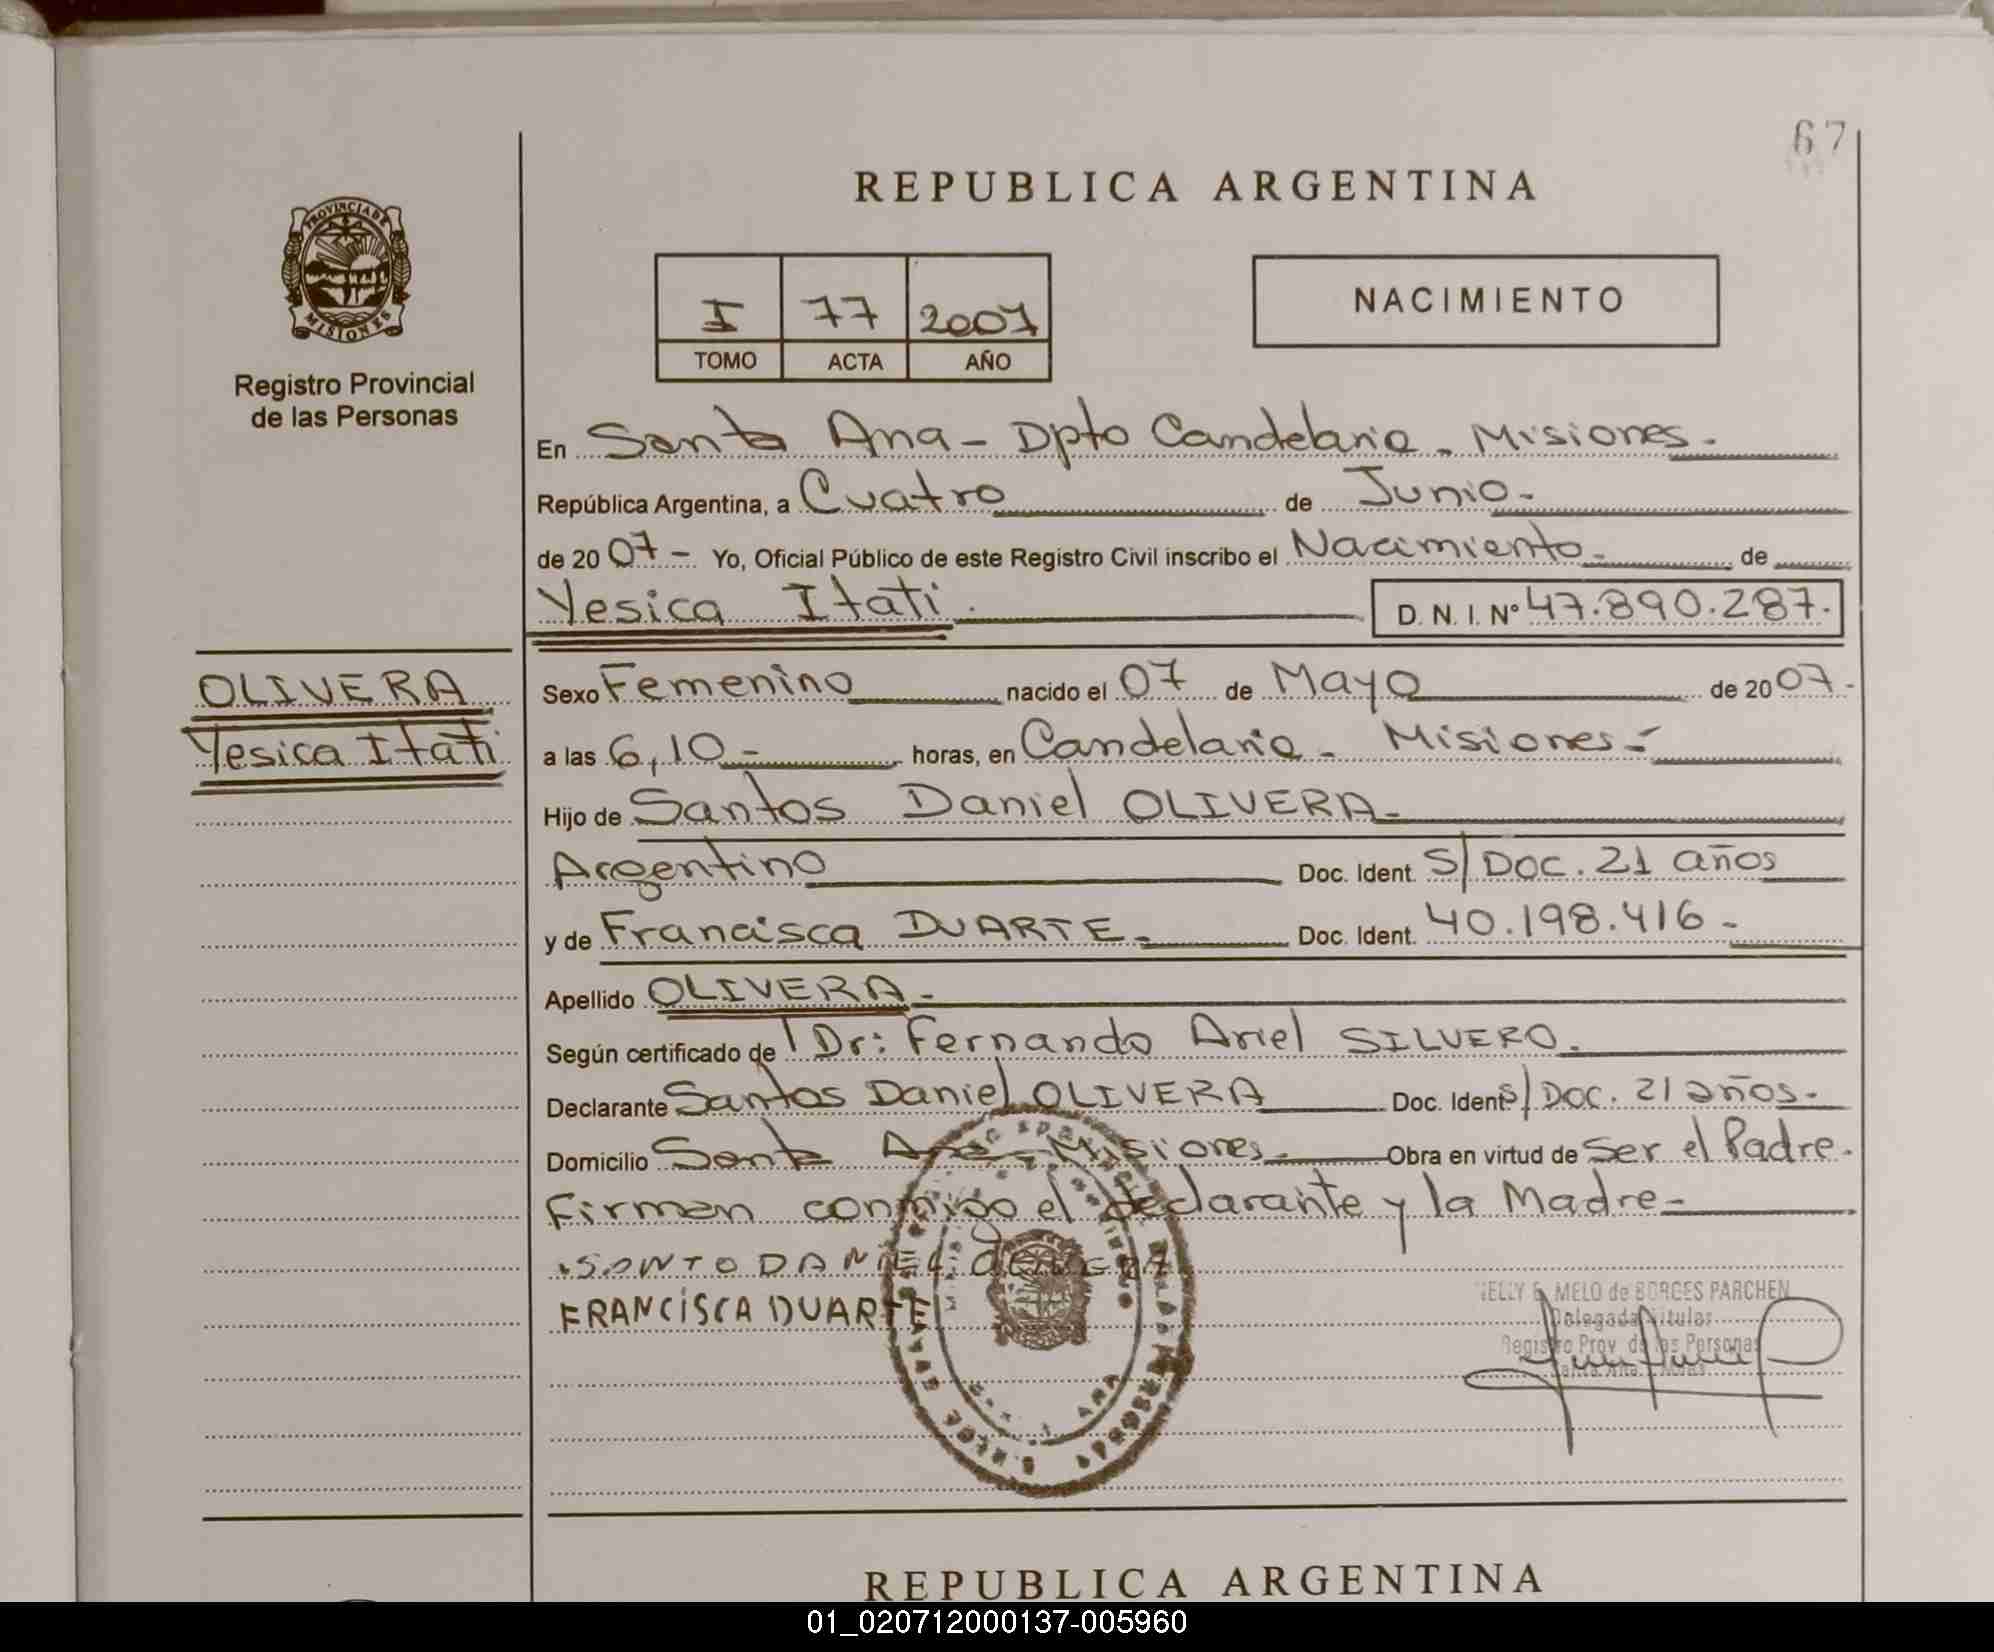 67
REPUBLICA ARGENTINA
PROVINCIA DE
MISIONES
Registro Provincial
de las Personas
I 77 2007
TOMO ACTA AÑO
NACIMIENTO
En Santa Ana - Dpto Candelaria - Misiones -
República Argentina, a Cuatro de Junio -
de 2007 - Yo, Oficial Público de este Registro Civil inscribo el Nacimiento - de
Yesica Itati . D. N. I. Nº 47.890.287.
OLIVERA
Yesica Itati
Sexo Femenino nacido el 07 de Mayo de 2007 -
a las 6,10 - horas, en Candelaria - Misiones -
Hijo de Santos Daniel OLIVERA -
Argentino Doc. Ident. S/Doc. 21 años
y de Francisca DUARTE - Doc. Ident. 40.198.416 -
Apellido OLIVERA -
Según certificado de Dr: Fernando Ariel SILVERO.
Declarante Santos Daniel OLIVERA Doc. Ident S/Doc. 21 años -
Domicilio Santa Ana - Misiones - Obra en virtud de ser el Padre -
Firman conmigo el declarante y la Madre -
SONTO DANIEL
FRANCISCA DUARTE
NELLY E. MELO de BORGES PARCHEN
Delegada Titular
Registro Prov. de las Personas
REPUBLICA ARGENTINA
01_020712000137-005960